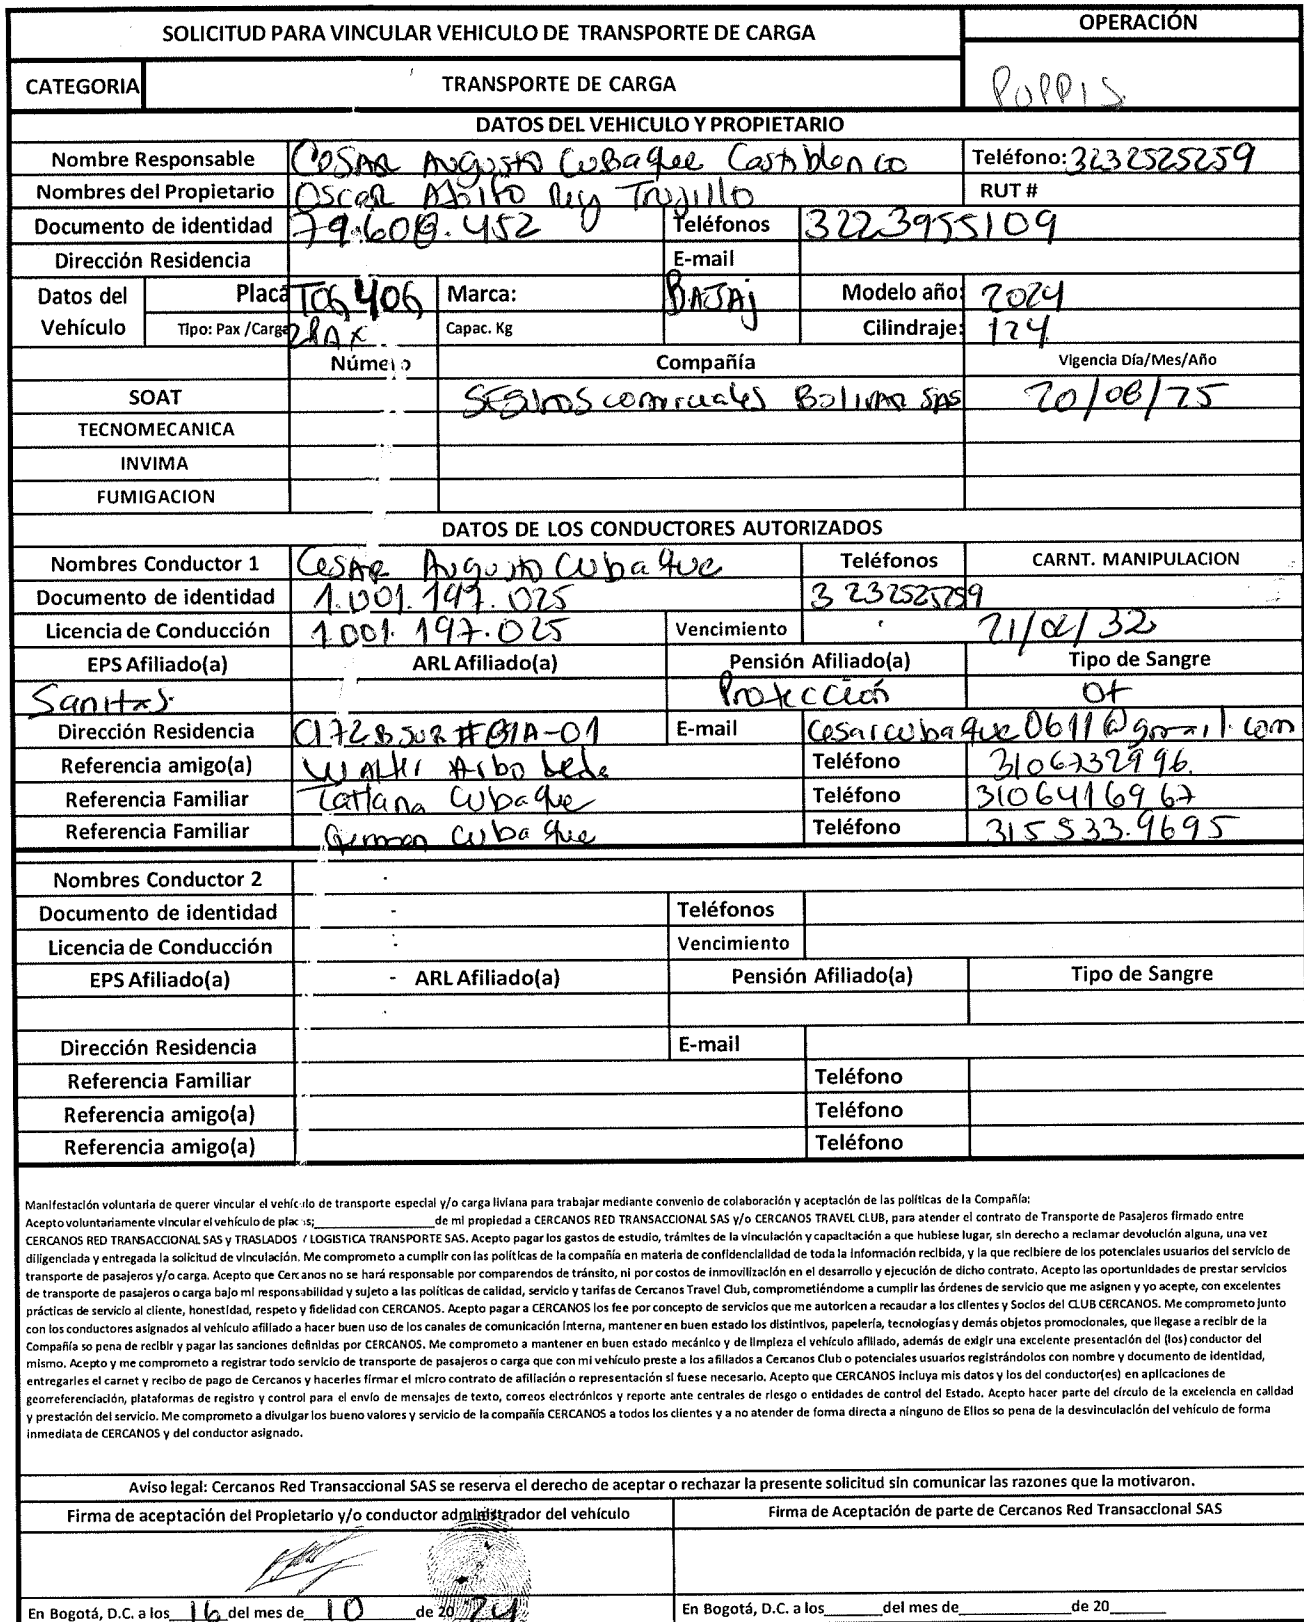 SOLICITUD PARA VINCULAR VEHICULO DE TRANSPORTE DE CARGA
OPERACIÓN
CATEGORIA TRANSPORTE DE CARGA
PUPPIS
DATOS DEL VEHICULO Y PROPIETARIO
Nombre Responsable Cesar Augusto Cubaque Castiblanco Teléfono: 3232525259
Nombres del Propietario Oscar Adolfo Rey Trujillo RUT #
Documento de identidad Teléfonos 3223955109
Dirección Residencia E-mail
Datos del Vehículo Placa Marca: BAJAJ Modelo año: 2024
Tipo: Pax /Carga 2PAX Capac. Kg Cilindraje: 124
Número Compañía Vigencia Día/Mes/Año
SOAT Seguros comerciales Bolivar SAS 20/08/25
TECNOMECANICA
INVIMA
FUMIGACION
DATOS DE LOS CONDUCTORES AUTORIZADOS
Nombres Conductor 1 Cesar Augusto Cubaque Teléfonos CARNT. MANIPULACION
Documento de identidad 1.001.197.025 3232525259
Licencia de Conducción 1.001.197.025 Vencimiento
EPS Afiliado(a) ARL Afiliado(a) Pensión Afiliado(a) Tipo de Sangre
Sanitas. Protección O+
Dirección Residencia E-mail cesarcubaque0611@gmail.com
Referencia amigo(a) Walter Arboleda Teléfono 3106732996.
Referencia Familiar Tatiana Cubaque Teléfono 3106416967
Referencia Familiar German Cubaque Teléfono 315533.9695
Nombres Conductor 2
Documento de identidad Teléfonos
Licencia de Conducción Vencimiento
EPS Afiliado(a) ARL Afiliado(a) Pensión Afiliado(a) Tipo de Sangre
Dirección Residencia E-mail
Referencia Familiar Teléfono
Referencia amigo(a) Teléfono
Referencia amigo(a) Teléfono
Manifestación voluntaria de querer vincular el vehículo de transporte especial y/o carga liviana para trabajar mediante convenio de colaboración y aceptación de las políticas de la Compañía:
Acepto voluntariamente vincular el vehículo de placas;____________________de mi propiedad a CERCANOS RED TRANSACCIONAL SAS y/o CERCANOS TRAVEL CLUB, para atender el contrato de Transporte de Pasajeros firmado entre
CERCANOS RED TRANSACCIONAL SAS y TRASLADOS / LOGISTICA TRANSPORTE SAS. Acepto pagar los gastos de estudio, trámites de la vinculación y capacitación a que hubiese lugar, sin derecho a reclamar devolución alguna, una vez
diligenciada y entregada la solicitud de vinculación. Me comprometo a cumplir con las políticas de la compañía en materia de confidencialidad de toda la información recibida, y la que recibiere de los potenciales usuarios del servicio de
transporte de pasajeros y/o carga. Acepto que Cercanos no se hará responsable por comparendos de tránsito, ni por costos de inmovilización en el desarrollo y ejecución de dicho contrato. Acepto las oportunidades de prestar servicios
de transporte de pasajeros o carga bajo mi responsabilidad y sujeto a las políticas de calidad, servicio y tarifas de Cercanos Travel Club, comprometiéndome a cumplir las órdenes de servicio que me asignen y yo acepte, con excelentes
prácticas de servicio al cliente, honestidad, respeto y fidelidad con CERCANOS. Acepto pagar a CERCANOS los fee por concepto de servicios que me autoricen a recaudar a los clientes y Socios del CLUB CERCANOS. Me comprometo junto
con los conductores asignados al vehículo afiliado a hacer buen uso de los canales de comunicación interna, mantener en buen estado los distintivos, papelería, tecnologías y demás objetos promocionales, que llegase a recibir de la
Compañía so pena de recibir y pagar las sanciones definidas por CERCANOS. Me comprometo a mantener en buen estado mecánico y de limpieza el vehículo afiliado, además de exigir una excelente presentación del (los) conductor del
mismo. Acepto y me comprometo a registrar todo servicio de transporte de pasajeros o carga que con mi vehículo preste a los afiliados a Cercanos Club o potenciales usuarios registrándolos con nombre y documento de identidad,
entregarles el carnet y recibo de pago de Cercanos y hacerles firmar el micro contrato de afiliación o representación si fuese necesario. Acepto que CERCANOS incluya mis datos y los del conductor(es) en aplicaciones de
georreferenciación, plataformas de registro y control para el envío de mensajes de texto, correos electrónicos y reporte ante centrales de riesgo o entidades de control del Estado. Acepto hacer parte del círculo de la excelencia en calidad
y prestación del servicio. Me comprometo a divulgar los bueno valores y servicio de la compañía CERCANOS a todos los clientes y a no atender de forma directa a ninguno de Ellos so pena de la desvinculación del vehículo de forma
inmediata de CERCANOS y del conductor asignado.
Aviso legal: Cercanos Red Transaccional SAS se reserva el derecho de aceptar o rechazar la presente solicitud sin comunicar las razones que la motivaron.
Firma de aceptación del Propietario y/o conductor administrador del vehículo Firma de Aceptación de parte de Cercanos Red Transaccional SAS
En Bogotá, D.C. a los 16 del mes de 10 de 20 24 En Bogotá, D.C. a los_______del mes de______________de 20_______